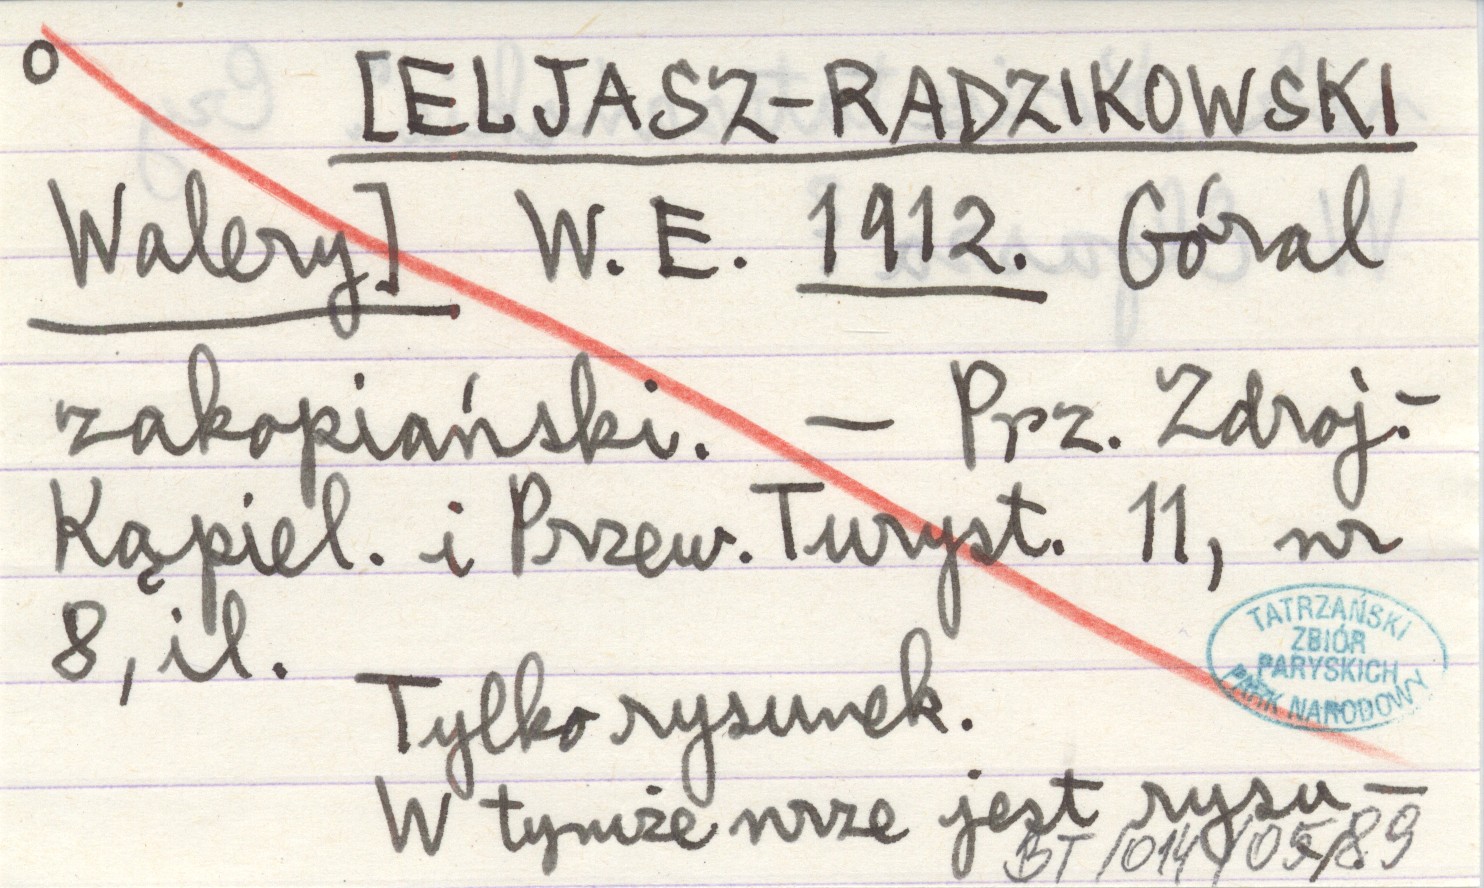 o
[ELJASZ-RADZIKOWSKI
Walery] W. E. 1912. Góral
zakopiański. — Prz. Zdroj.-
Kąpiel. i Przew. Turyst. 11, nr
8, il.
TATRZAŃSKI
ZBIÓR
PARYSKICH
PARK NARODOWY
Tylko rysunek.
W tymże nrze jest rysu-
BT/014/05/89